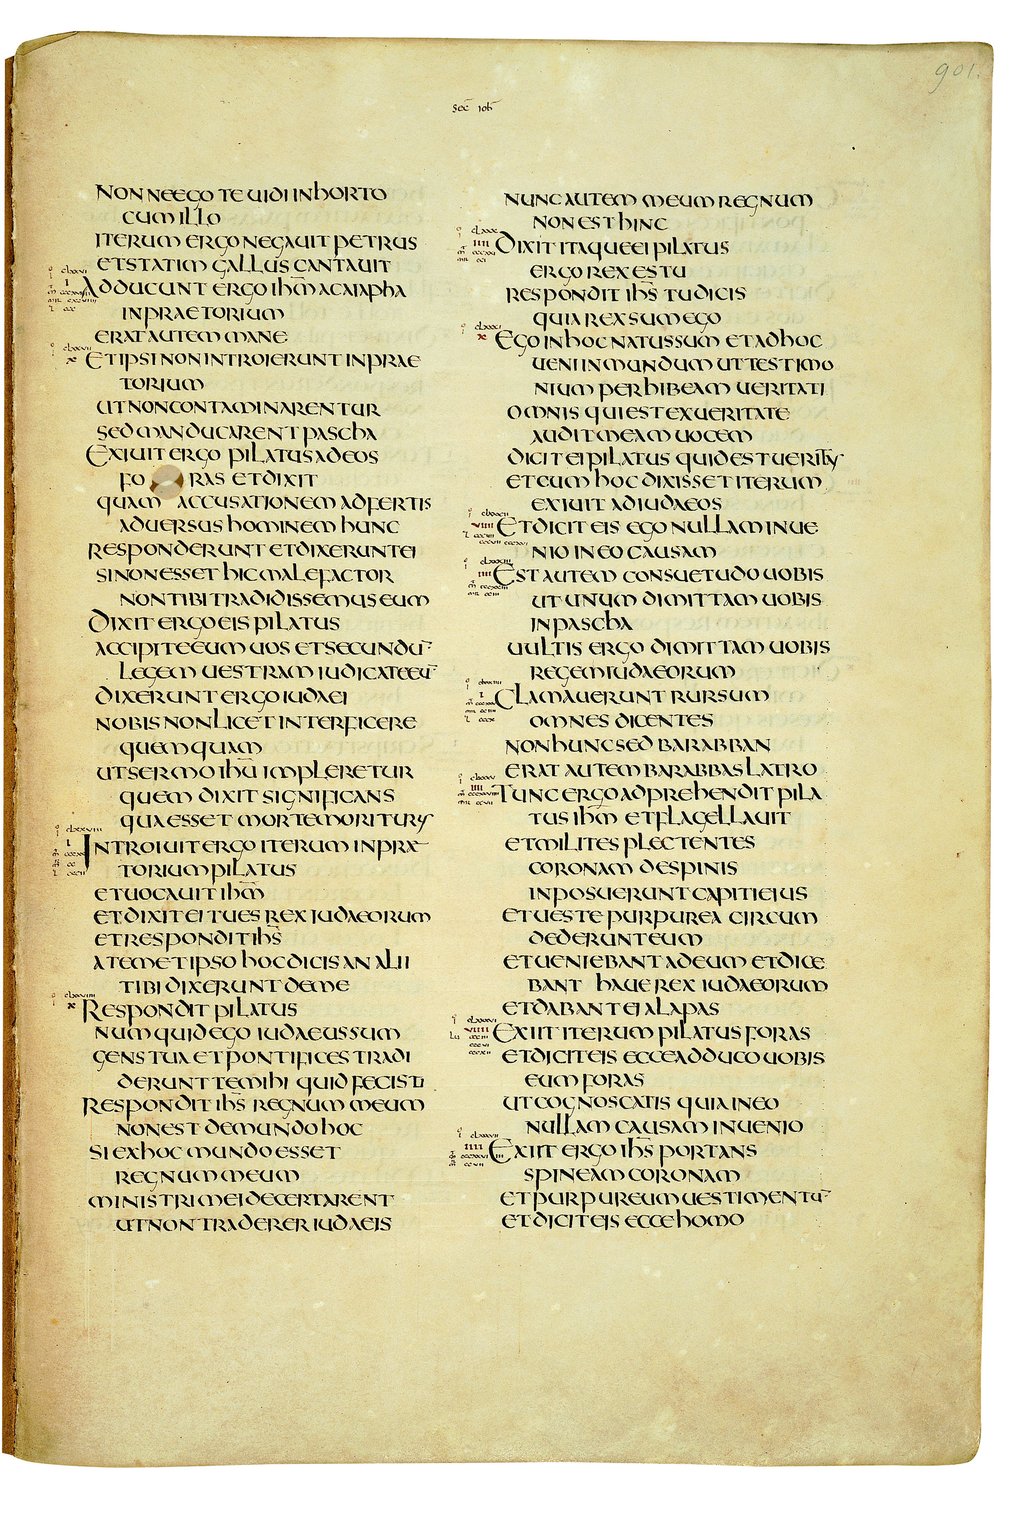 901.
Sec Ioh̄
NON NE EGO TE UIDI IN HORTO
CUM ILLO
ITERUM ERGO NEGAUIT PETRUS
ET STATIM GALLUS CANTAUIT
ADDUCUNT ERGO IHM̄ A CAIAPHA
IN PRAETORIUM
ERAT AUTEM MANE
ET IPSI NON INTROIERUNT IN PRAE
TORIUM
UT NON CONTAMINARENTUR
SED MANDUCARENT PASCHA
EXIUIT ERGO PILATUS AD EOS
FO RAS ET DIXIT
QUAM ACCUSATIONEM ADFERTIS
ADUERSUS HOMINEM HUNC
RESPONDERUNT ET DIXERUNT EI
SI NON ESSET HIC MALEFACTOR
NON TIBI TRADIDISSEMUS EUM
DIXIT ERGO EIS PILATUS
ACCIPITE EUM UOS ET SECUNDŪ
LEGEM UESTRAM IUDICATE EŪ
DIXERUNT ERGO IUDAEI
NOBIS NON LICET INTERFICERE
QUEMQUAM
UT SERMO IHŪ IMPLERETUR
QUEM DIXIT SIGNIFICANS
QUA ESSET MORTE MORITURUS
INTROIUIT ERGO ITERUM IN PRAE
TORIUM PILATUS
ET UOCAUIT IHM̄
ET DIXIT EI TU ES REX IUDAEORUM
ET RESPONDIT IHS̄
A TEMET IPSO HOC DICIS AN ALII
TIBI DIXERUNT DE ME
RESPONDIT PILATUS
NUMQUID EGO IUDAEUS SUM
GENS TUA ET PONTIFICES TRADI
DERUNT TE MIHI QUID FECISTI
RESPONDIT IHS̄ REGNUM MEUM
NON EST DE MUNDO HOC
SI EX HOC MUNDO ESSET
REGNUM MEUM
MINISTRI MEI DECERTARENT
UT NON TRADERER IUDAEIS
NUNC AUTEM MEUM REGNUM
NON EST HINC
DIXIT ITAQUE EI PILATUS
ERGO REX ES TU
RESPONDIT IHS̄ TU DICIS
QUIA REX SUM EGO
EGO IN HOC NATUS SUM ET AD HOC
UENI IN MUNDUM UT TESTIMO
NIUM PERHIBEAM UERITATI
OMNIS QUI EST EX UERITATE
AUDIT MEAM UOCEM
DICIT EI PILATUS QUID EST UERITAS
ET CUM HOC DIXISSET ITERUM
EXIUIT AD IUDAEOS
ET DICIT EIS EGO NULLAM INUE
NIO IN EO CAUSAM
EST AUTEM CONSUETUDO UOBIS
UT UNUM DIMITTAM UOBIS
IN PASCHA
UULTIS ERGO DIMITTAM UOBIS
REGEM IUDAEORUM
CLAMAUERUNT RURSUM
OMNES DICENTES
NON HUNC SED BARABBAN
ERAT AUTEM BARABBAS LATRO
TUNC ERGO ADPREHENDIT PILA
TUS IHM̄ ET FLAGELLAUIT
ET MILITES PLECTENTES
CORONAM DE SPINIS
INPOSUERUNT CAPITI EIUS
ET UESTE PURPUREA CIRCUM
DEDERUNT EUM
ET UENIEBANT AD EUM ET DICE
BANT HAUE REX IUDAEORUM
ET DABANT EI ALAPAS
EXIIT ITERUM PILATUS FORAS
ET DICIT EIS ECCE ADDUCO UOBIS
EUM FORAS
UT COGNOSCATIS QUIA IN EO
NULLAM CAUSAM INUENIO
EXIIT ERGO IHS̄ PORTANS
SPINEAM CORONAM
ET PURPUREUM UESTIMENTŪ
ET DICIT EIS ECCE HOMO